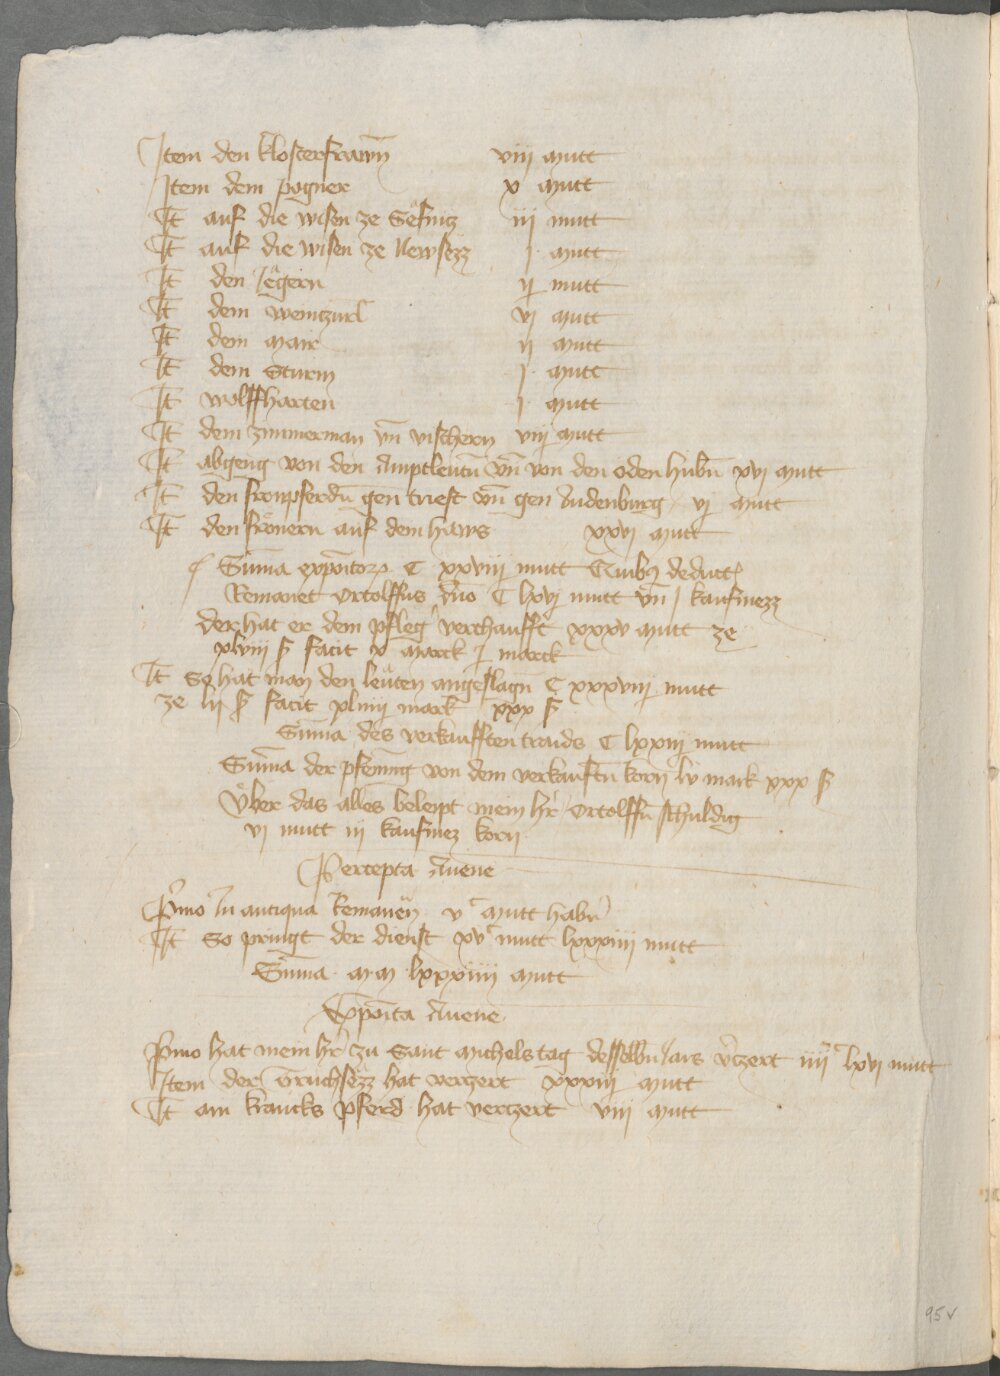 Item den klosterfrawn̄ viij mutt
Item dem pogner x mutt
It̄ auf die wisen ze Seͤfnitz iij mutt
It̄ auf die wisen ze Newsezz j mutt
It̄ den Jeͤgern ij mutt
It̄ dem weintzurl vj mutt
It̄ dem mair ij mutt
It̄ dem Sturm j mutt
It̄ wolffharten j mutt
It̄ dem zimmerman vn̄ vischern viij mutt
It̄ abgeng von den Amptleutn̄ vn̄ von den öden hubn̄ xvj mutt
It̄ den fronpferdn̄ gen triest vn̄ gen Judenburg vj mutt
It̄ den frönern auf dem haws xxvj mutt
Sum̄a expoītor C xxviij mutt Quibꝫ deduct
Remanet Ortolffus dn̄o C lxvj mutt vn̄ j kaufmezz
der hat er dem pfleg̾ verchaufft xxxv mutt ze
xlviij ß facit x marck j marck
It̄ So hat man den leüten angeslagn̄ C xxxviij mutt
ze lij ß facit xliiij mark xxx ß
Sum̄a des verkaufften traids C lxxiij mutt
Sum̄a der pfennīg von dem verkauftn̄ korn lv mark xxx ß
Vͤber das alles beleipt mein hr̄ Ortolffn̄ schuldig
vj mutt iij kaufmez korn
Percepta Auene
P̾mo In antiqua Remanen̄ vᶜ mutt habn̄
It̄ So pringt der dienst xvᶜ mutt lxxxiiij mutt
Sum̄a m m lxxxiiij mutt
Expoīta Auene
P̾mo hat mein hr̄ zu Sant michelstag desselbn̄ Jars v̾tzert iiijᶜ lxvj mutt
Item der Druchsezz hat verczert xxxiij mutt
It̄ am krancks pferd hat vertzert viij mutt
95v